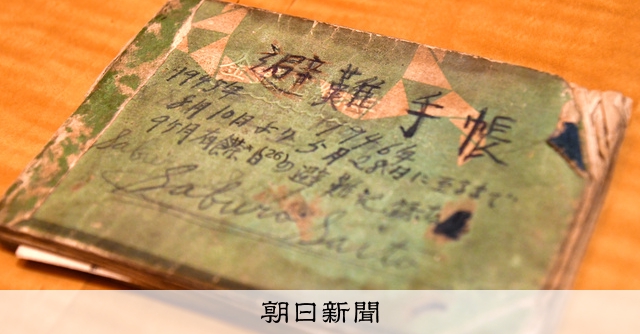 避難手帳
1945年 1946年
8月10日より5月28日に至るまで
避難記録
Saburo Saito
朝日新聞